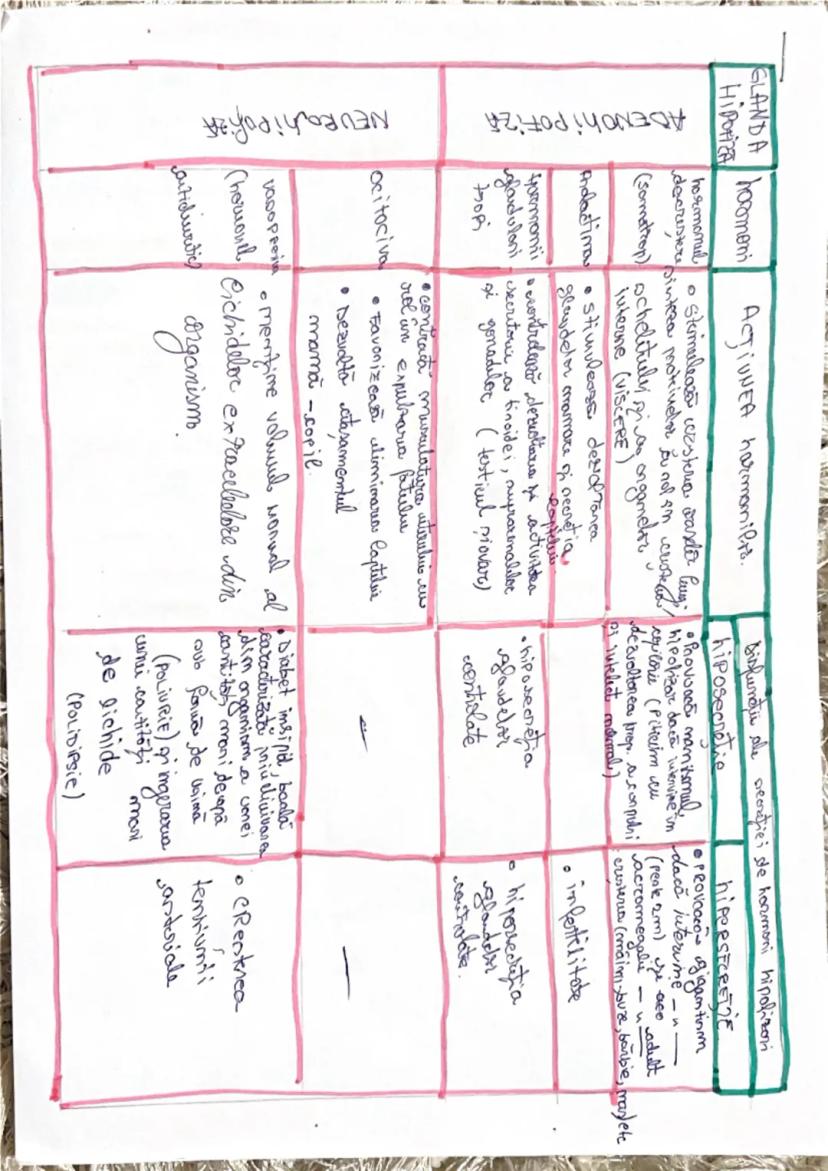 GLANDA
HIPOFIZA
hormoni
ACȚIUNEA hormonilor.
Disfuncții ale secreției de hormoni hipofizari
hiposecreție
hipersecreție
ADENOhipofiză
hormonul
de creștere
(somatotrop)
• Stimulează creșterea oaselor lungi
sinteza proteinelor și rol în creșterea
scheletului și a organelor
interne (VISCERE)
• Provoacă nanismul
hipofizar dacă intervine în
copilărie (Pititism cu
dezvoltarea prop. a corpului
și intelect normal)
• PROVOACĂ gigantism
dacă intervine — u —
(peste 2m) și
acromegalie — u — adult
creșterea (mâini, buze, bărbie,
prolactina
• stimulează dezvoltarea
glandelor mamare și secreția
laptelui
• infertilitate
hormonii
glandulari
tropi
• controlează dezvoltarea și activitatea
secretorie a tiroidei, suprarenalelor
și gonadelor (testicul și ovar)
• hiposecreția
glandelor
controlate
• hipersecreția
glandelor
controlate.
NEUROhipofiză
ocitocina
• contractă musculatura uterului cu
rol în expulzarea fătului
• Favorizează eliminarea laptelui
• Dezvoltă atașamentul
mamă - copil.
—
—
vasopresina
(hormonul
antidiuretic)
• menține volumul normal al
lichidelor extracelulare din
organism.
• Diabet insipid, boală
caracterizată prin eliminarea
din organism a unei
cantități mari de apă
sub formă de urină
(POLIURIE) și ingerarea
unei cantități mari
de lichide
(POLIDIPSIE)
• CREȘTEREA
tensiunii
arteriale